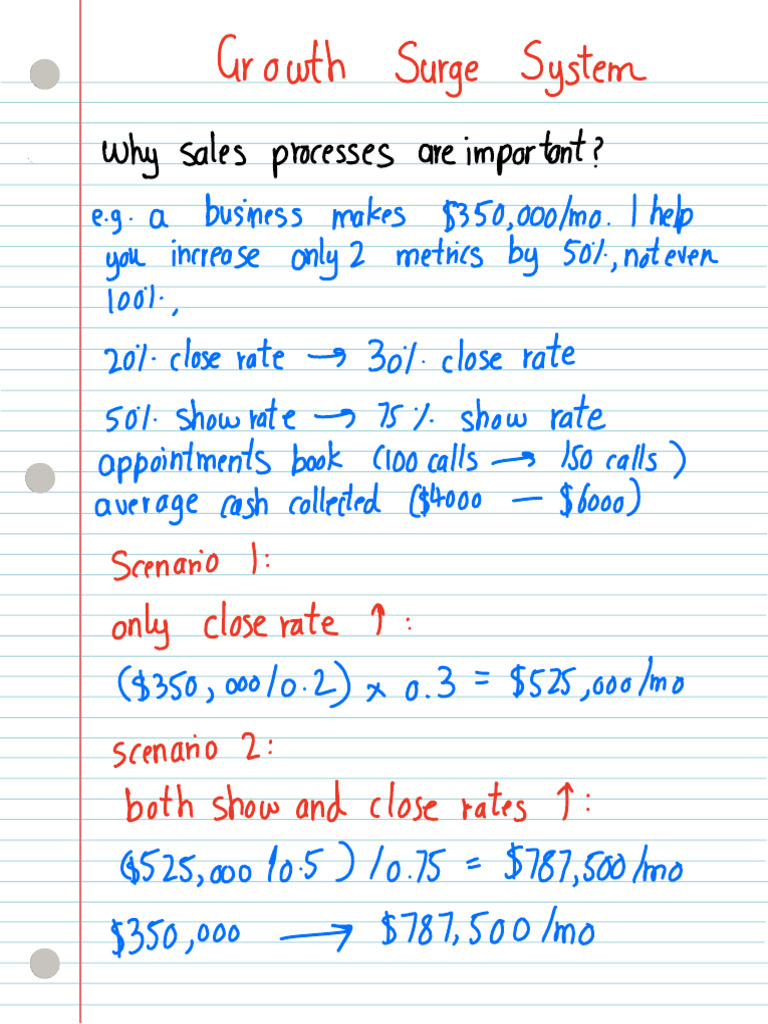 Growth Surge System
Why sales processes are important?
e.g. a business makes $350,000/mo. I help
you increase only 2 metrics by 50%, not even
100%,
20% close rate → 30% close rate
50% show rate → 75% show rate
appointments book (100 calls → 150 calls)
average cash collected ($4000 — $6000)
Scenario 1:
only close rate ↑:
($350,000/0.2) x 0.3 = $525,000/mo
scenario 2:
both show and close rates ↑:
($525,000/0.5)/0.75 = $787,500/mo
$350,000 → $787,500/mo